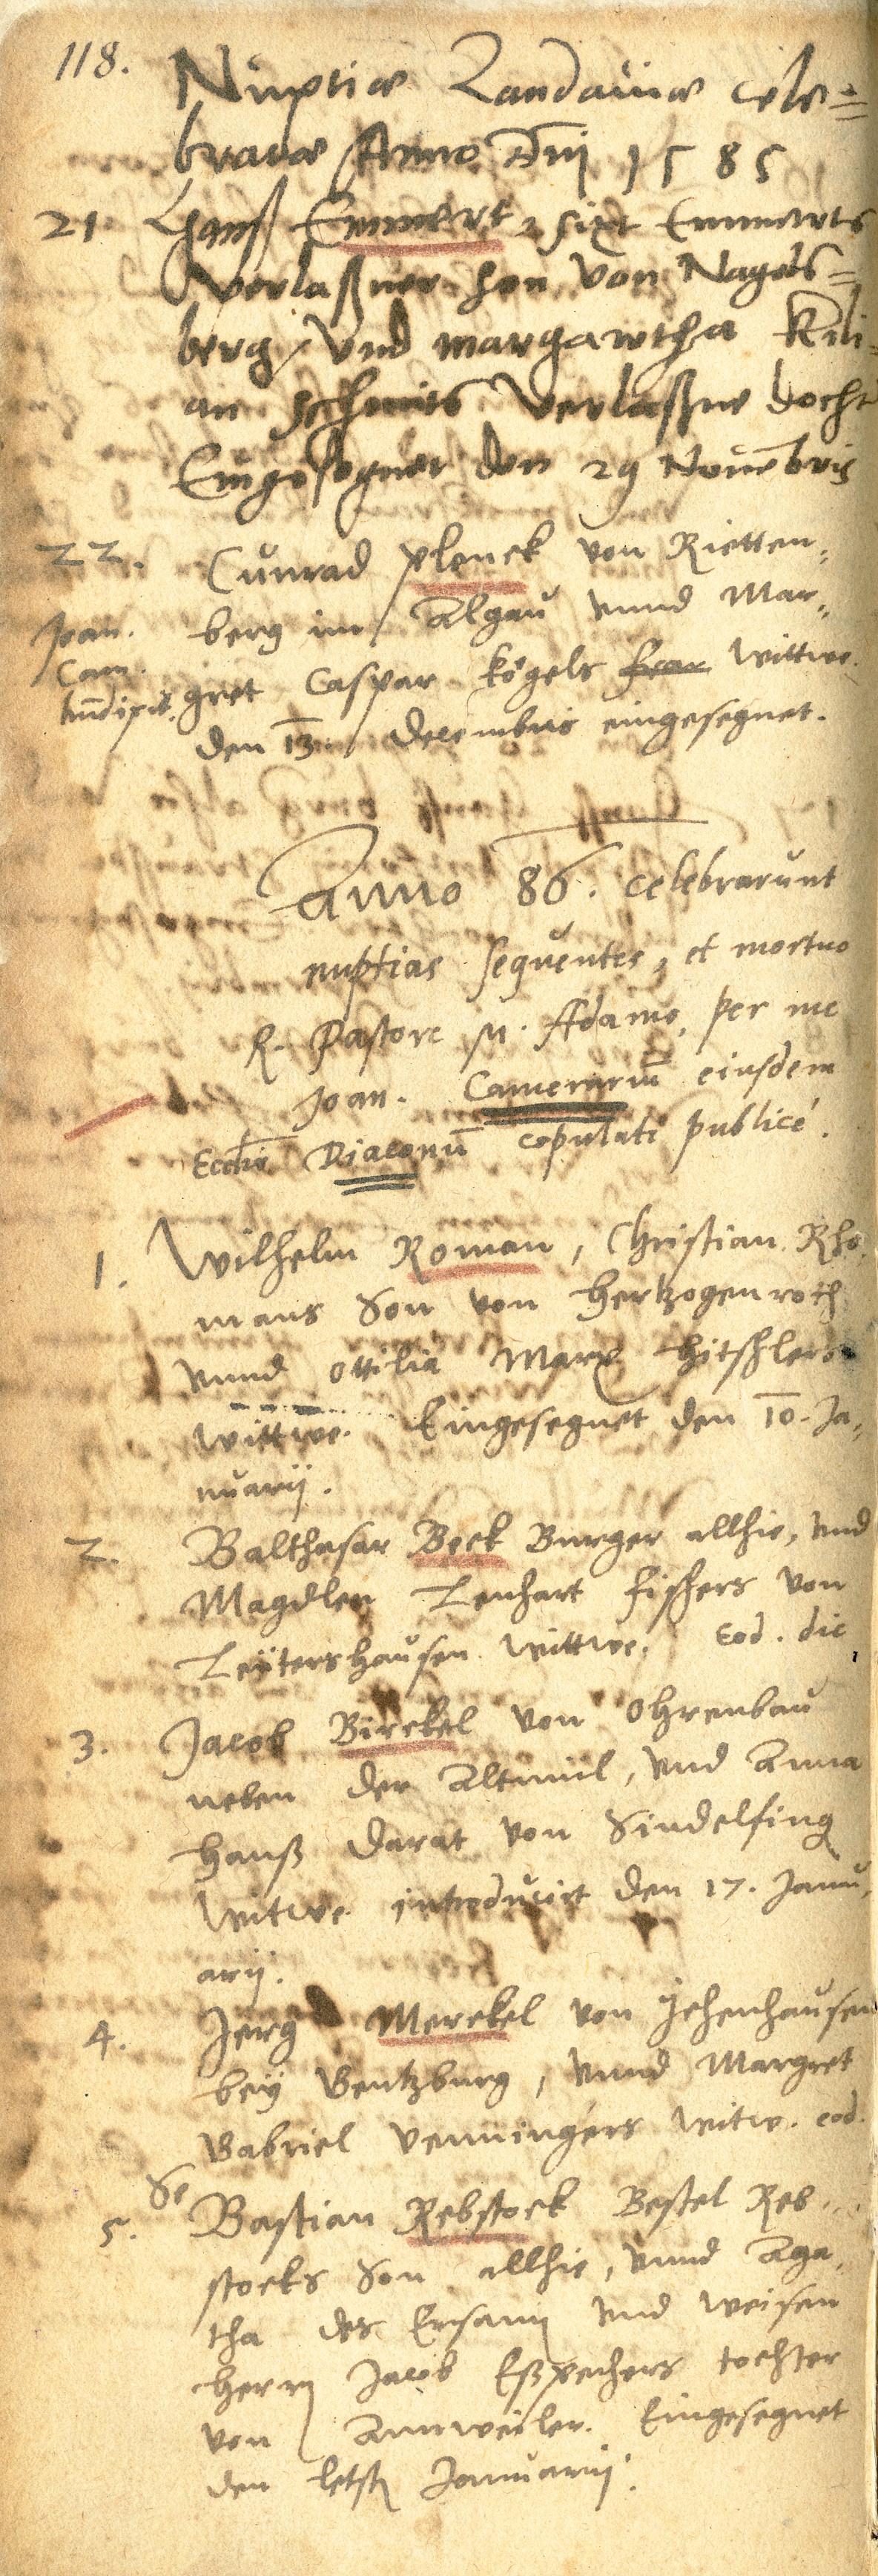 118.
Nuptiæ Landauiæ cele=
bratæ Anno Dnj 1585
21 Hanß Emmert, Sixt Emmerts
verlaßner son von Nagels=
berg, Vnd margaretha Kili=
an Schmits verlaßne docht
Eingesegnet den 29 Nouēbris
22. Cunrad Plenck von Rietten,
berg im Algau vnnd Mar,
Joan.
Cam. gret Caspar Kögels frau Wittwe.
den 13. decembris eingesegnet.
Anno 86. celebrarunt
nuptias sequentes, et mortuo
R. Pastore M. Adamo, per me
Joan. Camerariū eiusdem
Eccliæ Diaconū copulati publicé.
1. Wilhelm Roman, Christian Rho,
mans Son von Hertzogenroth
vnnd Ottilia Marx Hitschlers
Wittwe. Eingesegnet den 10. Ja,
nuarij.
2. Balthasar Beck Burger allhie, vnd
Magdlen Lenhart Fischers von
Leütershausen Wittwe. Eod. die
3. Jacob Birckel von Ohrenbau
neben der Altmül, vnd Anna
Hanß Darat von Sindelfing
Witwe introducirt den 17. Janu,
arij.
4. Jerg Merckel von Jehenhausen
bey Gentzburg, vnnd Margret
Gabriel Venningers Witw. eod.
Se
5. Bastian Rebstock Bestel Reb,
stocks Son allhie, vnnd Aga,
tha des Ersamen vnd weisen
Herrn Jacob Eßpechers tochter
von Annweiler. Eingesegnet
den letst Januarij.